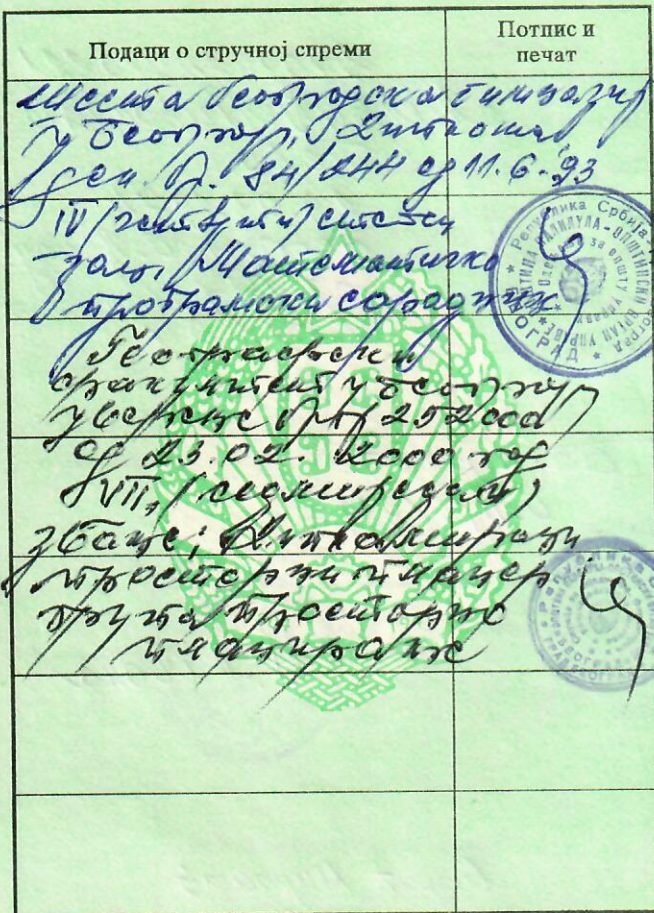 Подаци о стручној спреми
Потпис и
печат
Шеста београдска гимназија
у Београду, Диплома
дел. бр. 84/244 од 11.6.'93
IV /четврти/ степен
зање, Математичко
програмски сарадник
Географски
факултет у Београду
уверење број 252000
од 23.02. 2000 год
VII, (седми)
звање: Дипломирани
просторни планер
група Просторно
планирање
Република Србија
БЕОГРАД